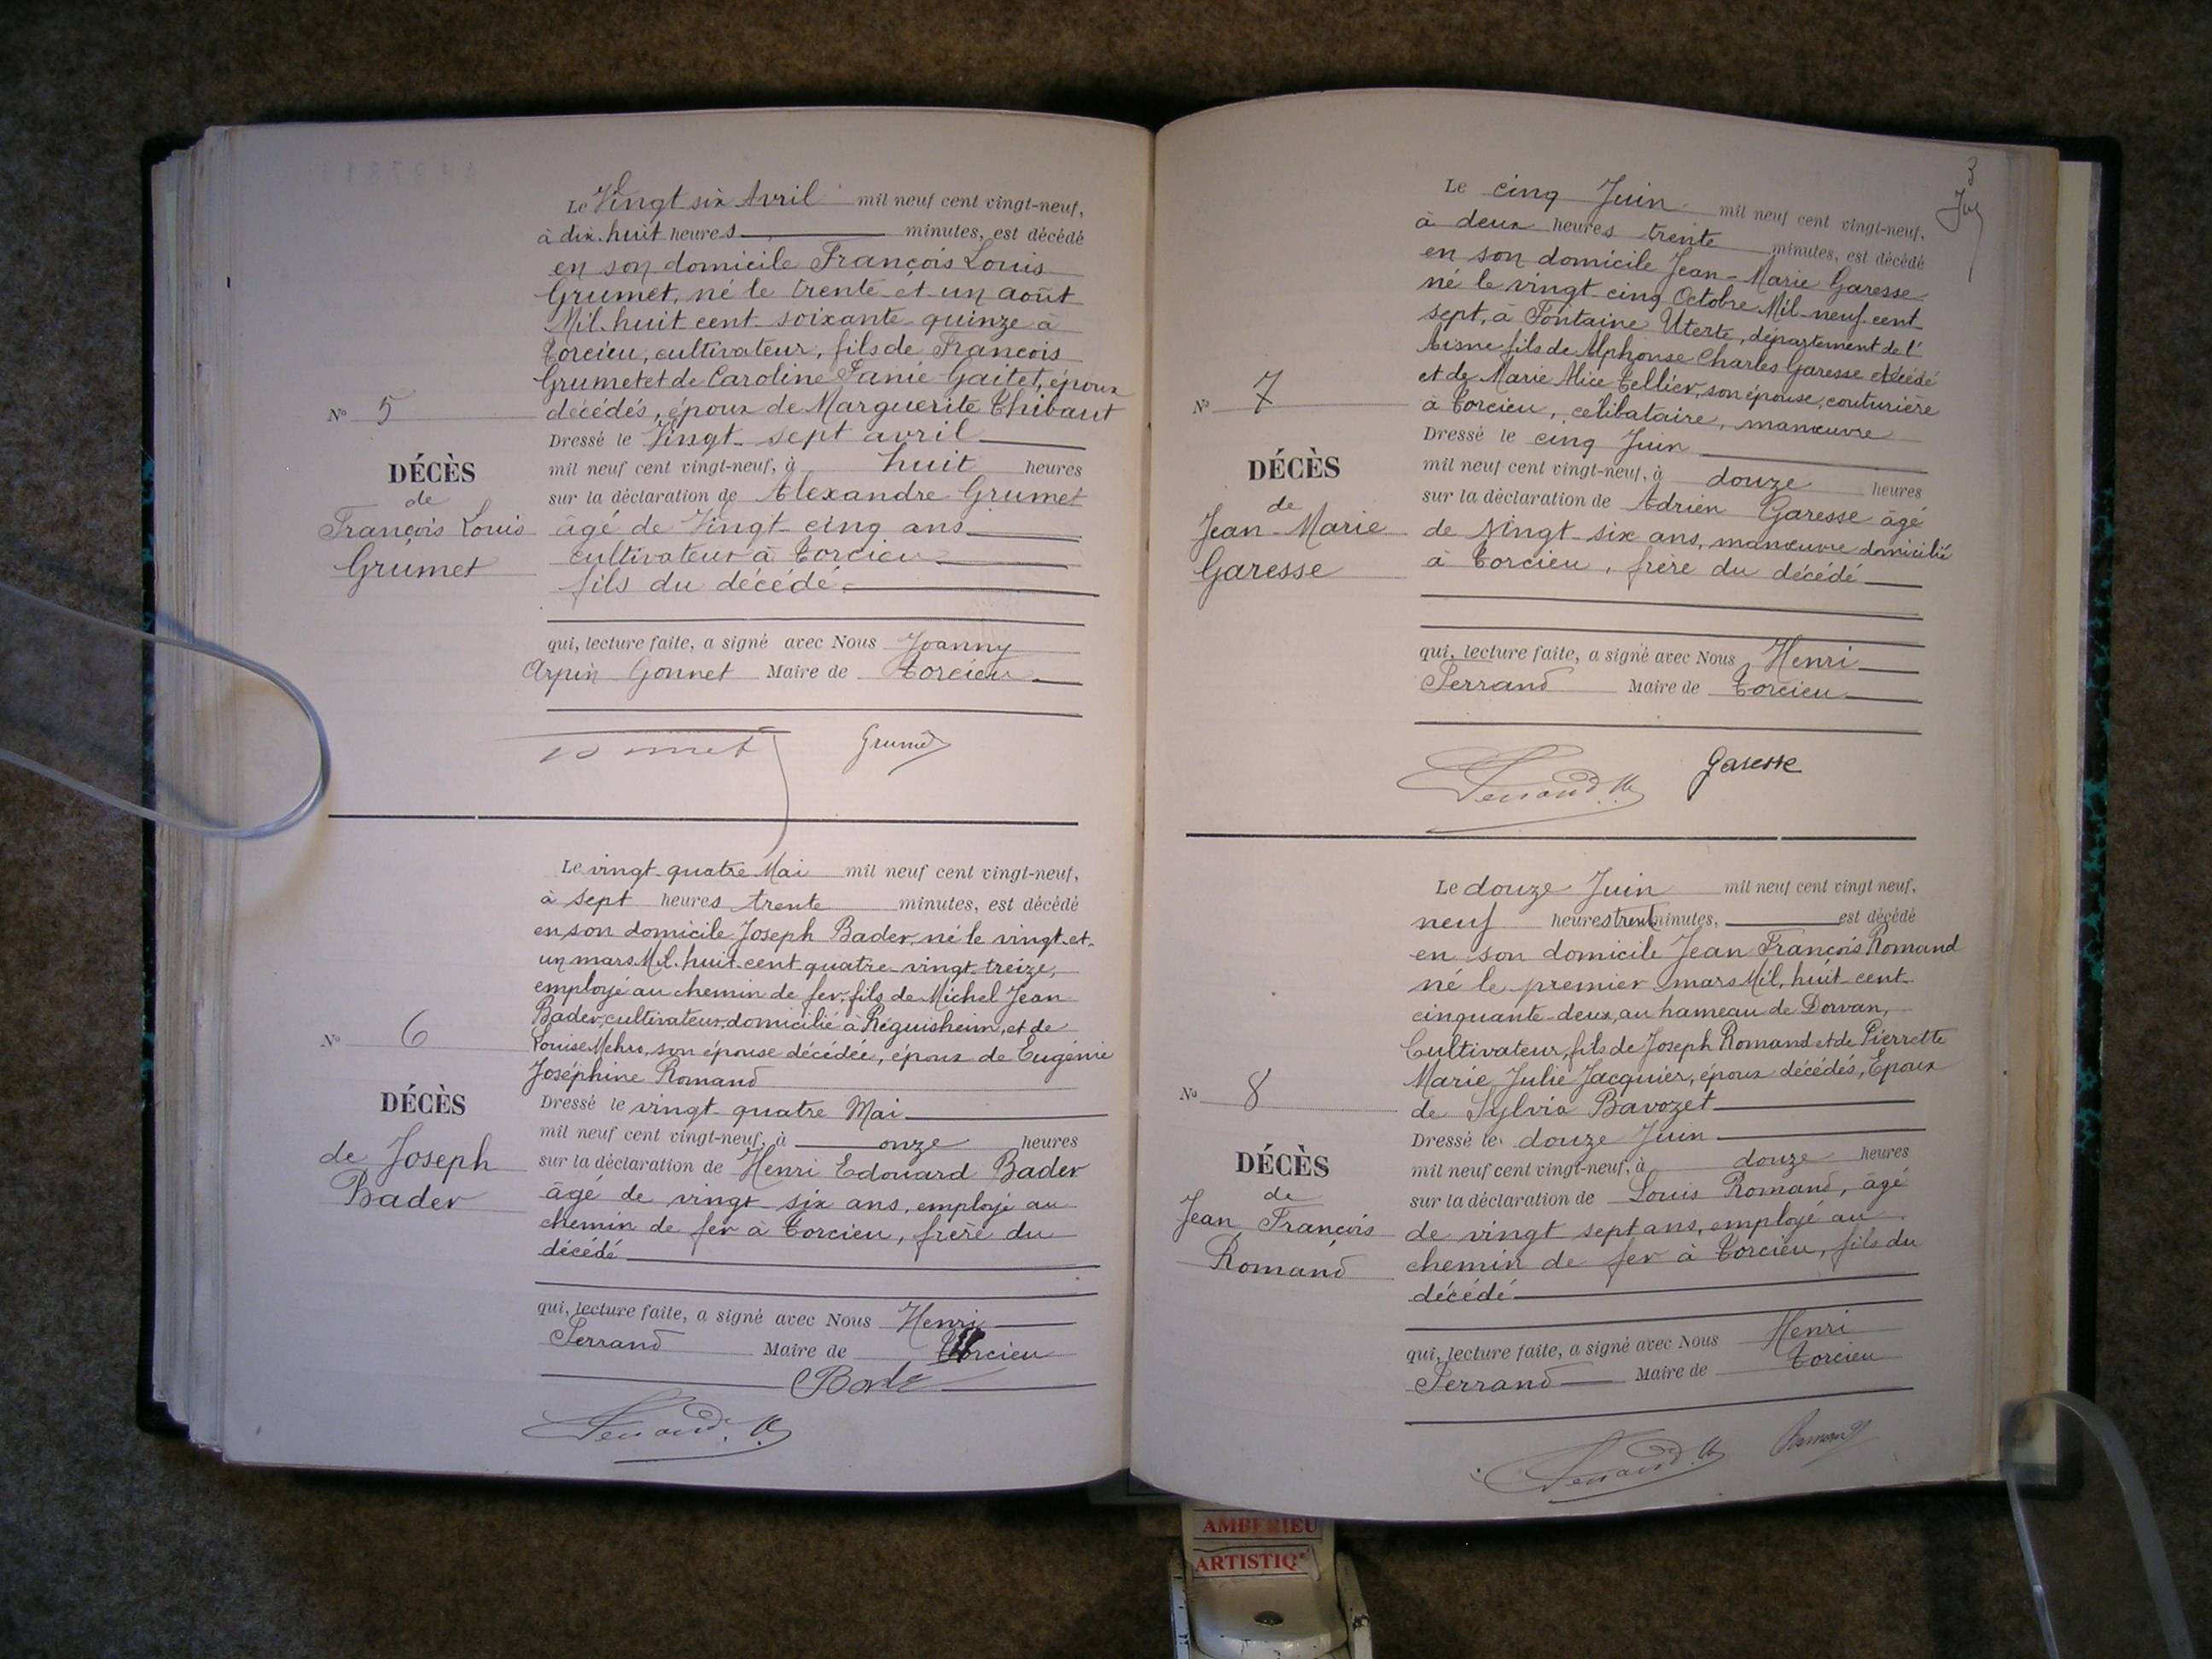 Le Vingt six Avril mil neuf cent vingt-neuf,
à dix-huit heures minutes, est décédé
en son domicile François Louis
Grumet, né le trente et un août
Mil. huit cent soixante-quinze à
Torcieu, cultivateur, fils de Francois
Grumet et de Caroline Fanie Gaitet, époux
décédés, époux de Marguerite Thibaut
Dressé le Vingt-sept avril
mil neuf cent vingt-neuf, à huit heures
sur la déclaration de Alexandre Grumet
âgé de Vingt-cinq ans
cultivateur à Torcieu
fils du décédé.
qui, lecture faite, a signé avec Nous Joanny
Arpin Gonnet Maire de Torcieu
Gonnet Grumet
N° 5
DÉCÈS
de
François Louis
Grumet
Le vingt-quatre Mai mil neuf cent vingt-neuf,
à sept heures trente minutes, est décédé
en son domicile Joseph Bader, né le vingt-et-
un mars Mil. huit-cent quatre-vingt-treize,
employé au chemin de fer, fils de Michel Jean
Bader, cultivateur, domicilié à Réguisheim, et de
Louise son épouse décédée, époux de Eugénie
Joséphine Romand
Dressé le vingt-quatre Mai
mil neuf cent vingt-neuf, à onze heures
sur la déclaration de Henri Edouard Bader
âgé de vingt-six ans, employé au
chemin de fer à Torcieu, frère du
décédé
qui, lecture faite, a signé avec Nous Henri
Ferrand Maire de Torcieu
Bader
Ferrand. H
N° 6
DÉCÈS
de Joseph
Bader
3
Le cinq Juin mil neuf cent vingt-neuf,
à deux heures trente minutes, est décédé
en son domicile Jean-Marie Garesse
né le vingt-cinq Octobre Mil-neuf-cent-
sept, à Fontaine Uterte, département de l'
Aisne fils de Alphonse Charles Garesse décédé
et de Marie Alice Tellier, son épouse, couturière
à Torcieu, célibataire, manœuvre
Dressé le cinq Juin
mil neuf cent vingt-neuf, à douze heures
sur la déclaration de Adrien Garesse âgé
de Vingt-six ans, manœuvre domicilié
à Torcieu, frère du décédé
qui, lecture faite, a signé avec Nous Henri
Ferrand Maire de Torcieu
Ferrand. H Garesse
N° 7
DÉCÈS
de
Jean-Marie
Garesse
Le douze Juin mil neuf cent vingt neuf,
neuf heures trente minutes, est décédé
en son domicile Jean François Romand
né le premier mars Mil, huit-cent-
cinquante-deux, au hameau de Dorvan,
Cultivateur, fils de Joseph Romand et de Pierrette
Marie Julie Jacquier, époux décédés, Epoux
de Sylvia Bavozet
Dressé le douze Juin
mil neuf cent vingt-neuf, à douze heures
sur la déclaration de Louis Romand, âgé
de vingt sept ans, employé au
chemin de fer à Torcieu, fils du
décédé
qui, lecture faite, a signé avec Nous Henri
Ferrand Maire de Torcieu
Ferrand. H Romand
N° 8
DÉCÈS
de
Jean François
Romand
AMBERIEU
ARTISTIQ